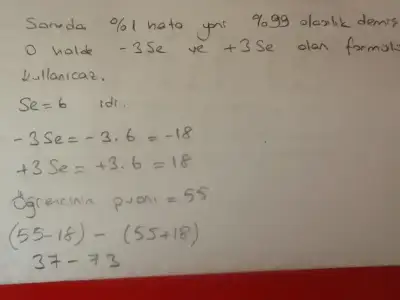 Soruda %1 hata yani %99 olasılık demiş
O halde -3Se ve +3Se olan formülü
kullanıcaz.
Se=6 idi.
-3Se = -3.6 = -18
+3Se = +3.6 = 18
Öğrencinin puanı = 55
(55-18) - (55+18)
37 - 73